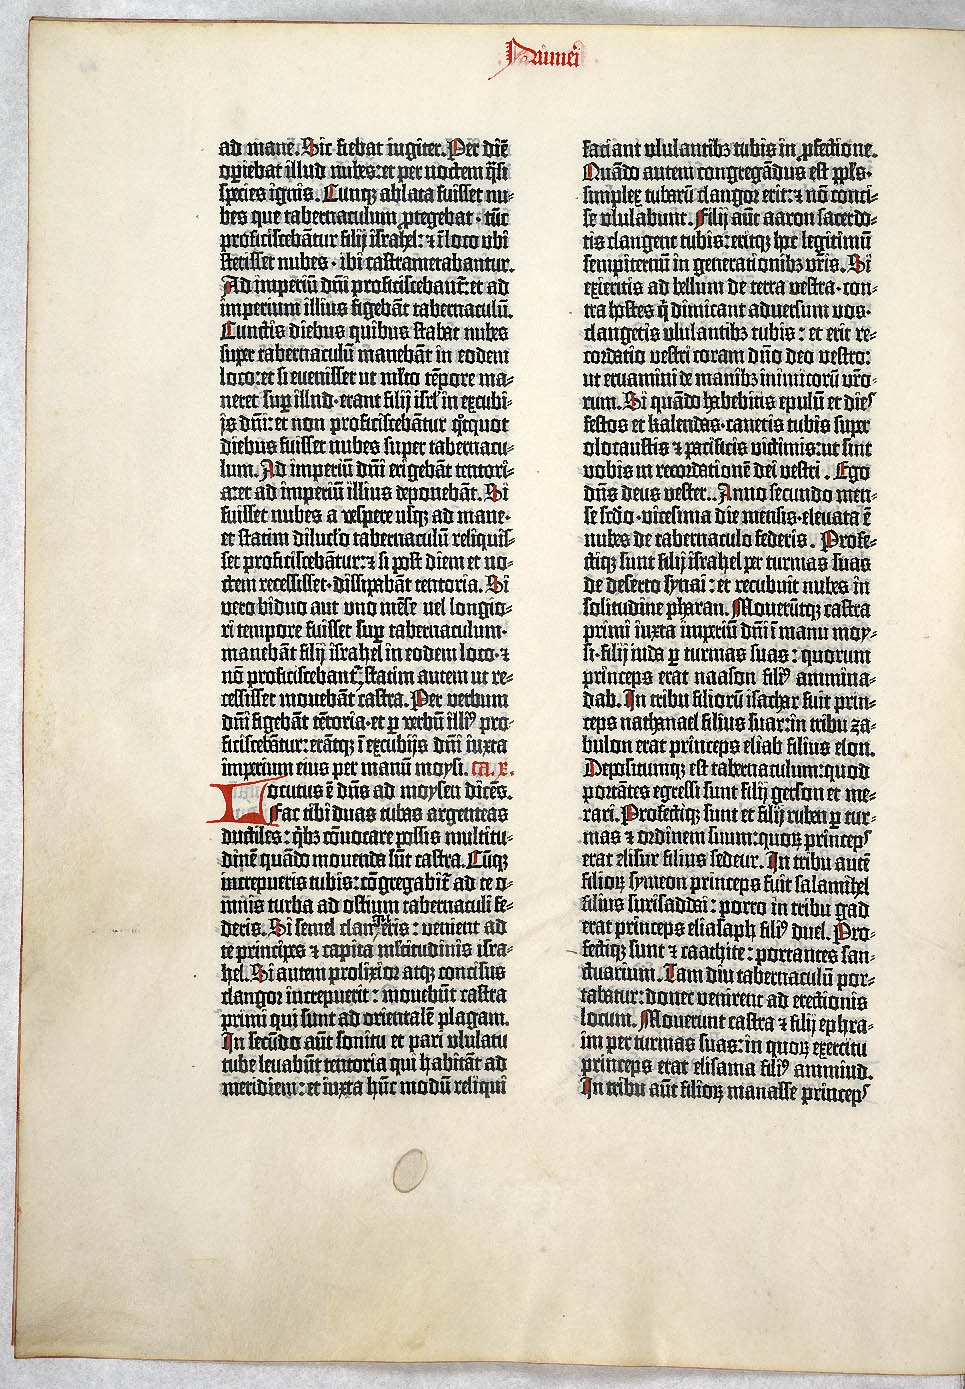 Numeri
ad mane. Sic fiebat iugiter. Per diē
operiebat illud nubes: et per noctem q̄si
species ignis. Cunqʒ ablata fuisset nu-
bes que tabernaculum ꝓtegebat · tūc
proficiscebātur filij israhel: ⁊ ī loco ubi
stetisset nubes · ibi castrametabantur.
Ad imperiū dn̄i proficiscebant̄: et ad
imperium illius figebāt tabernaculū.
Cunctis diebus quibus stabat nubes
super tabernaculū manebāt in eodem
loco: et si evenisset ut ml̄to tēpore ma-
neret suꝑ illud · erant filij isrl̄ in excubi-
js dn̄i: et non proficiscebātur q̊tquot
diebus fuisset nubes super tabernacu-
lum. Ad imperiū dn̄i erigebāt tentori-
a: et ad imperiū illius deponebāt. Si
fuisset nubes a vespere usqʒ ad mane ·
et statim diluculo tabernaculū reliquis-
set proficiscebātur: ⁊ si post diem et no-
ctem recessisset · dissipabāt tentoria. Si
vero biduo aut uno mēse vel longio-
ri tempore fuisset suꝑ tabernaculum ·
manebāt filij israhel in eodem loco · ⁊
nō proficiscebant̄: statim autem ut re-
cessisset movebāt castra. Per verbum
dn̄i figebāt tētoria · et ꝑ verbū illiꝰ pro-
ficiscebātur: erātqʒ ī excubijs dn̄i iuxta
imperium eius per manū moysi. ca. x.
Locutus ē dn̄s ad moysen dicēs.
Fac tibi duas tubas argenteas
ductiles: q̇bʒ cōvocare possis multitu-
dinē quādo movenda sūt castra. Cūqʒ
increpueris tubis: cōgregabit̄ ad te o-
mnis turba ad ostium tabernaculi fe-
deris. Si semel clangueris: venient ad
te principes ⁊ capita ml̄titudinis isra-
hel. Si autem prolixior atqʒ concisus
clangor increpuerit: movebūt castra
primi qui sunt ad orientalē plagam.
In secūdo aūt sonitu et pari ululatu
tube levabūt tentoria qui habitāt ad
meridiem: et iuxta hūc modū reliqui
faciant ululantibʒ tubis in ꝓfectione.
Quādo autem congregādus est ppl̄s ·
simplex tubarū clangor erit: ⁊ nō conci-
se ululabunt. Filij aūt aaron sacerdo-
tis clangent tubis: eritqʒ hoc legitimū
sempiternū in generationibʒ vr̄is. Si
exieritis ad bellum de terra vestra · con-
tra hostes q̇ dimicant adversum vos ·
clangetis ululantibʒ tubis: et erit re-
cordatio vestri coram dn̄o deo vestro:
ut eruamini de manibʒ inimicorū vr̄o-
rum. Si quādo habebitis epulū et dies
festos et kalendas · canetis tubis super
olocaustis ⁊ pacificis victimis: ut sint
vobis in recordationē dei vestri. Ego
dn̄s deus vester.. Anno secundo men-
se scd̄o · vicesima die mensis · elevata ē
nubes de tabernaculo federis. Profe-
ctiqʒ sunt filij israhel per turmas suas
de deserto synai: et recubuit nubes in
solitudine pharan. Moverūtqʒ castra
primi iuxta imperiū dn̄i ī manu moy-
si · filij iuda ꝑ turmas suas: quorum
princeps erat naason filiꝰ ammina-
dab. In tribu filiorū isachar fuit prin-
ceps nathanael filius suar: in tribu za-
bulon erat princeps eliab filius elon.
Depositumqʒ est tabernaculum: quod
portātes egressi sunt filij gerson et me-
rari. Profectiqʒ sunt et filij ruben ꝑ tur-
mas ⁊ ordinem suum: quoꝝ princeps
erat elisur filius sedeur. In tribu autē
filioꝝ symeon princeps fuit salamihel
filius surisaddai: porro in tribu gad
erat princeps eliasaph filiꝰ duel. Pro-
fectiqʒ sunt ⁊ caathite: portantes san-
ctuarium. Tam diu tabernaculū por-
tabatur: donec venirent ad erectionis
locum. Moverunt castra ⁊ filij ephra-
im per turmas suas: in quoꝝ exercitu
princeps erat elisama filiꝰ ammiud.
In tribu aūt filioꝝ manasse princeps